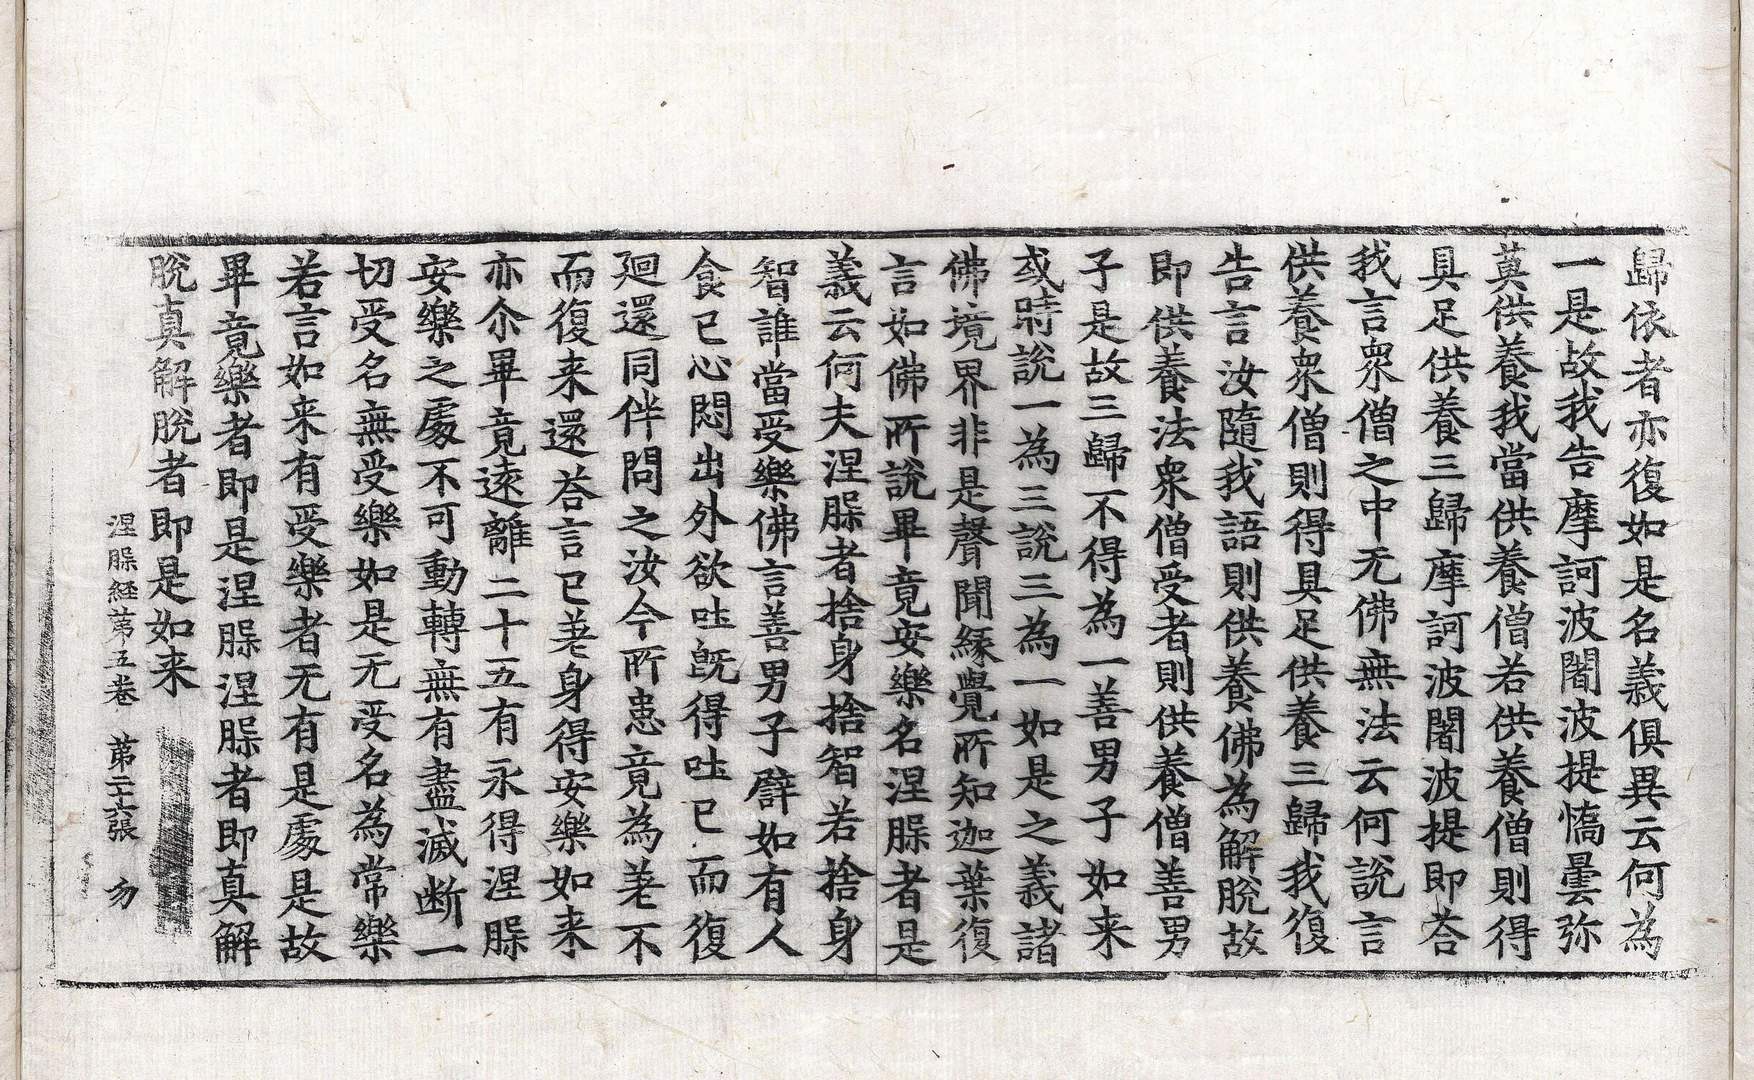 歸依者亦復如是名義俱異云何為
一是故我告摩訶波闍波提憍曇弥
莫供養我當供養僧若供養僧則得
具足供養三歸摩訶波闍波提即荅
我言衆僧之中无佛無法云何說言
供養衆僧則得具足供養三歸我復
告言汝隨我語則供養佛為解脫故
即供養法衆僧受者則供養僧善男
子是故三歸不得為一善男子如来
或時說一為三說三為一如是之義諸
佛境界非是聲聞緣覺所知迦葉復
言如佛所說畢竟安樂名涅槃者是
義云何夫涅槃者捨身捨智若捨身
智誰當受樂佛言善男子譬如有人
食已心悶出外欲吐旣得吐已而復
迴還同伴問之汝今所患竟為差不
而復来還荅言已差身得安樂如来
亦尒畢竟遠離二十五有永得涅槃
安樂之處不可動轉無有盡滅断一
切受名無受樂如是无受名為常樂
若言如来有受樂者无有是處是故
畢竟樂者即是涅槃涅槃者即真解
脫真解脫者即是如来
涅槃経第五卷 第二十六張 勿